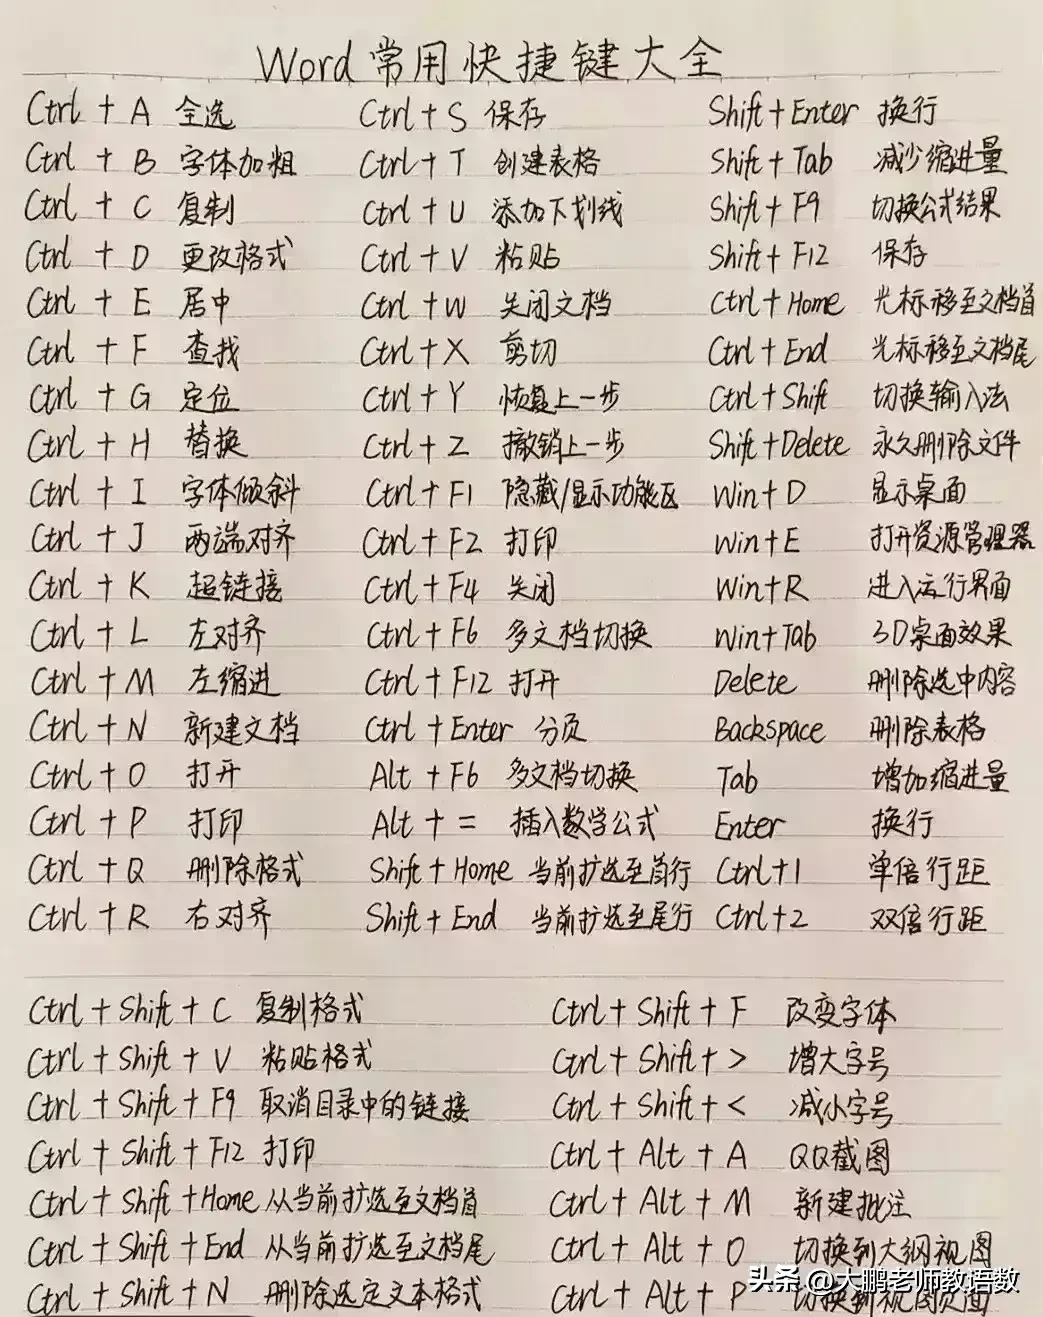 Word常用快捷键大全
Ctrl + A 全选 Ctrl + S 保存 Shift + Enter 换行
Ctrl + B 字体加粗 Ctrl + T 创建表格 Shift + Tab 减少缩进量
Ctrl + C 复制 Ctrl + U 添加下划线 Shift + F9 切换公式结果
Ctrl + D 更改格式 Ctrl + V 粘贴 Shift + F12 保存
Ctrl + E 居中 Ctrl + W 关闭文档 Ctrl + Home 光标移至文档首
Ctrl + F 查找 Ctrl + X 剪切 Ctrl + End 光标移至文档尾
Ctrl + G 定位 Ctrl + Y 恢复上一步 Ctrl + Shift 切换输入法
Ctrl + H 替换 Ctrl + Z 撤销上一步 Shift + Delete 永久删除文件
Ctrl + I 字体倾斜 Ctrl + F1 隐藏/显示功能区 Win + D 显示桌面
Ctrl + J 两端对齐 Ctrl + F2 打印 Win + E 打开资源管理器
Ctrl + K 超链接 Ctrl + F4 关闭 Win + R 进入运行界面
Ctrl + L 左对齐 Ctrl + F6 多文档切换 Win + Tab 3D桌面效果
Ctrl + M 左缩进 Ctrl + F12 打开 Delete 删除选中内容
Ctrl + N 新建文档 Ctrl + Enter 分页 Backspace 删除表格
Ctrl + O 打开 Alt + F6 多文档切换 Tab 增加缩进量
Ctrl + P 打印 Alt + = 插入数学公式 Enter 换行
Ctrl + Q 删除格式 Shift + Home 当前扩选至首行 Ctrl + 1 单倍行距
Ctrl + R 右对齐 Shift + End 当前扩选至尾行 Ctrl + 2 双倍行距
Ctrl + Shift + C 复制格式 Ctrl + Shift + F 改变字体
Ctrl + Shift + V 粘贴格式 Ctrl + Shift + > 增大字号
Ctrl + Shift + F9 取消目录中的链接 Ctrl + Shift + < 减小字号
Ctrl + Shift + F12 打印 Ctrl + Alt + A QQ截图
Ctrl + Shift + Home 从当前扩选至文档首 Ctrl + Alt + M 新建批注
Ctrl + Shift + End 从当前扩选至文档尾 Ctrl + Alt + O 切换到大纲视图
Ctrl + Shift + N 删除选定文本格式 Ctrl + Alt + P 切换到视图页面
头条 @大鹏老师教语数